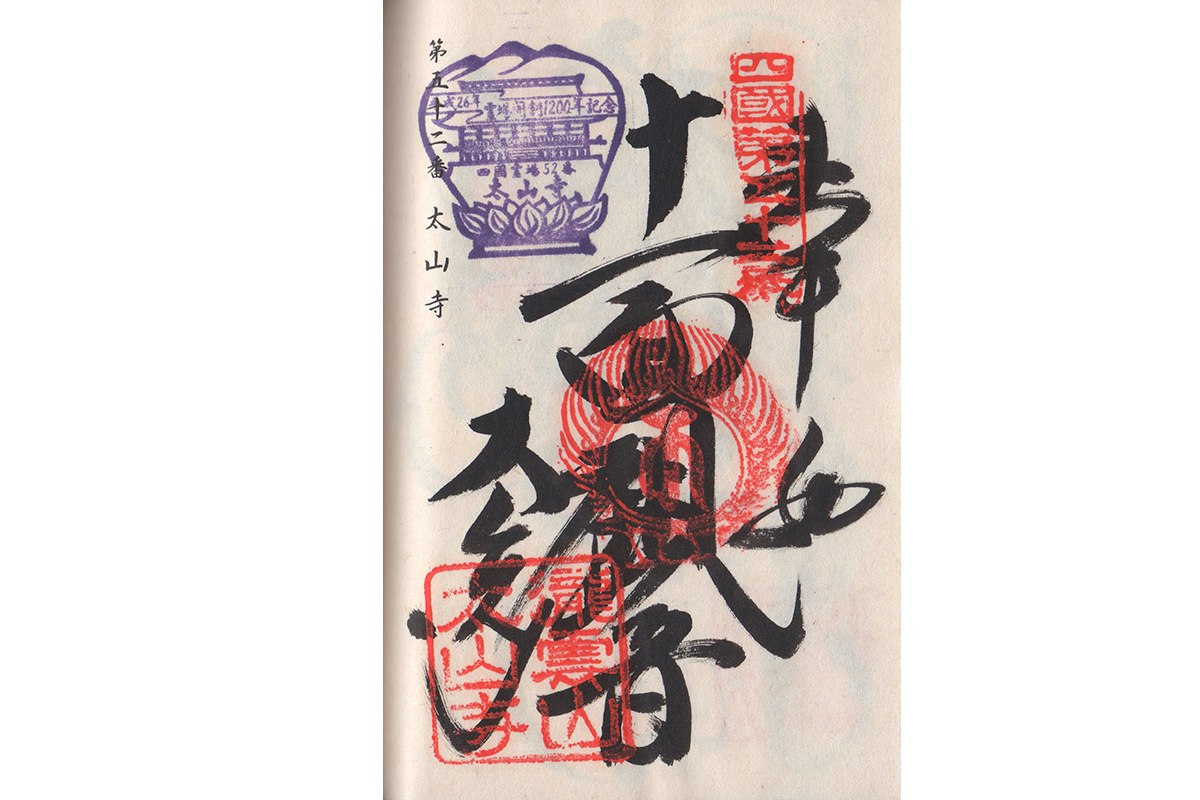 四國第五十二番
奉
十一面観音
太山寺
瀧雲山
太山寺
平成26年 霊場開創1200年記念
四国霊場52番
太山寺
第五十二番 太山寺